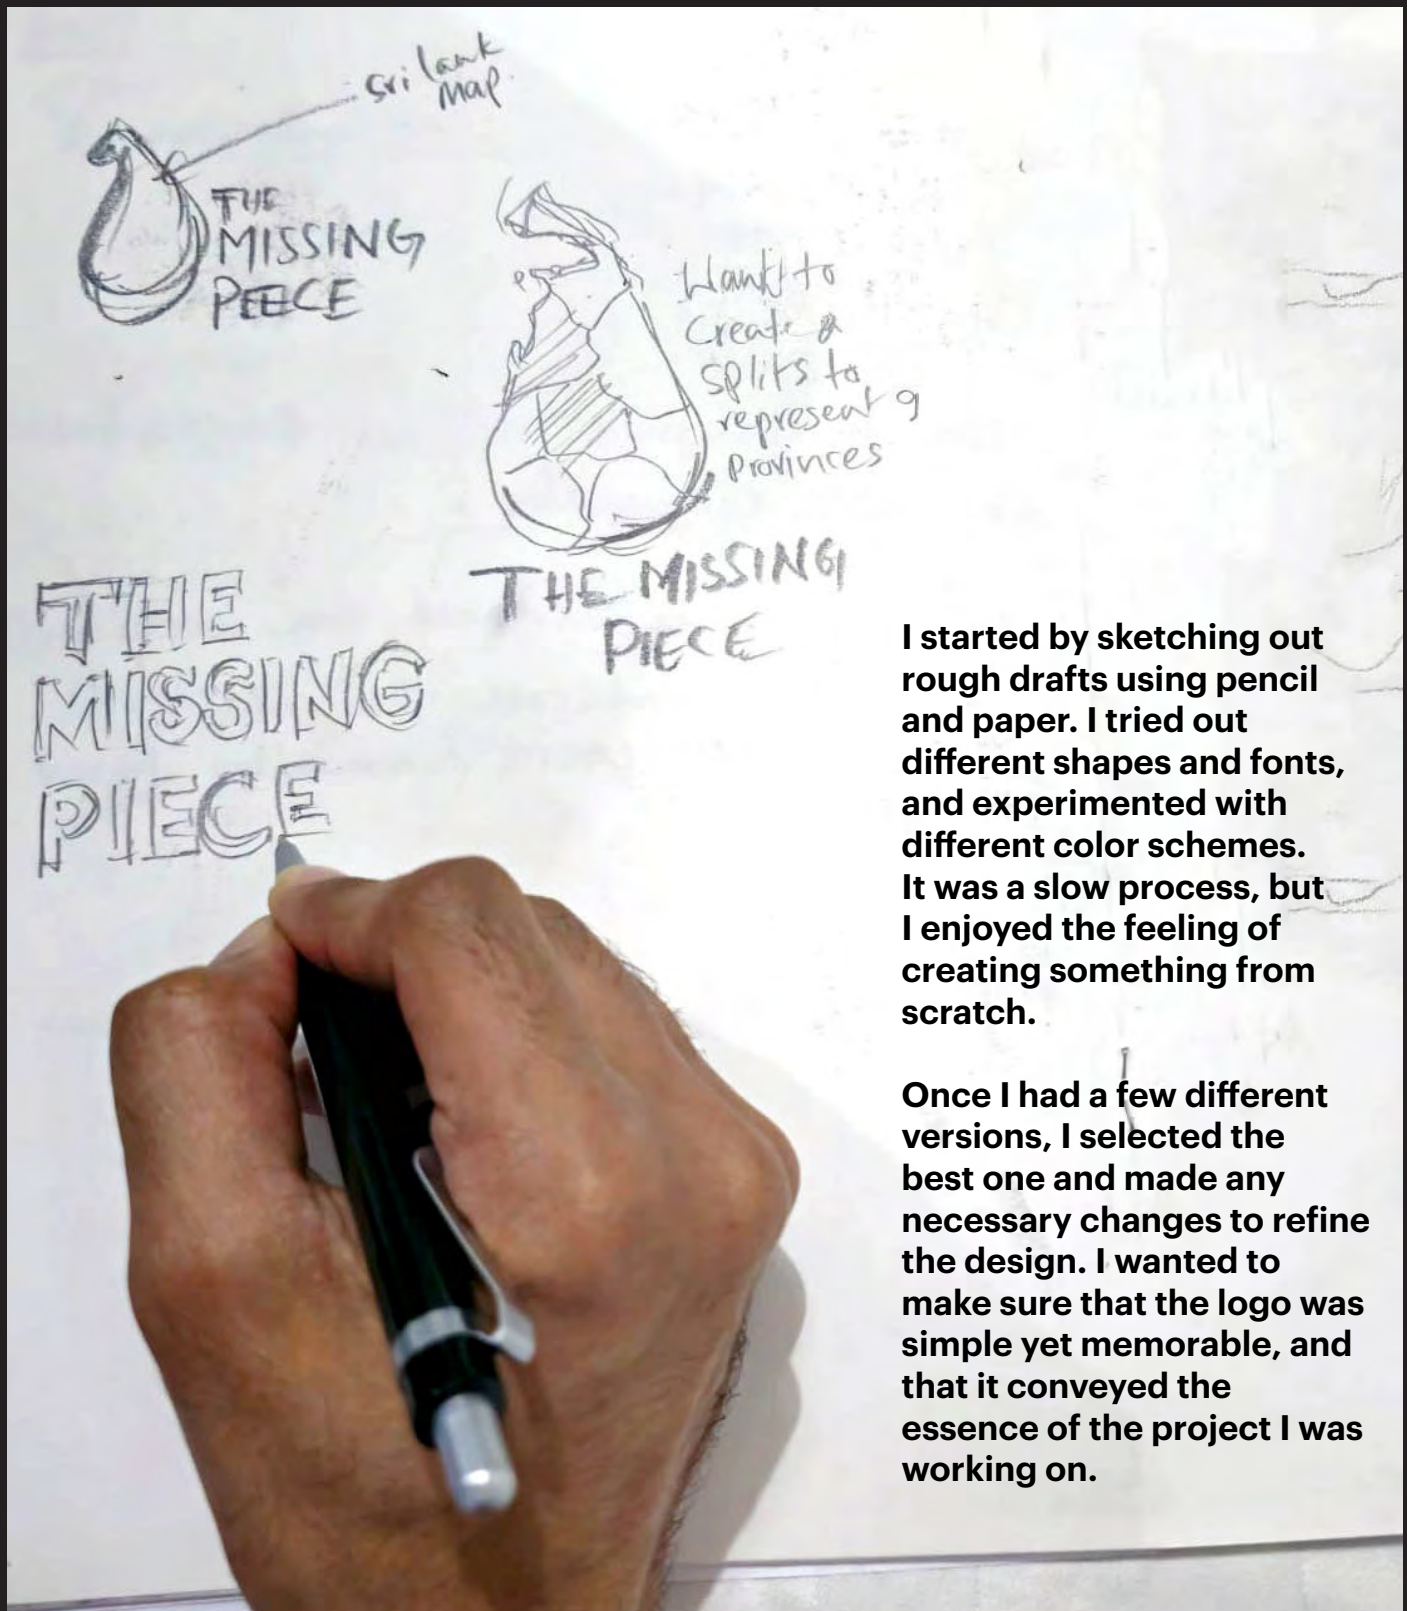 sri lank
map.
THE
MISSING
PEECE
Want to
create a
splits to
represent 9
provinces
THE MISSING
PIECE
THE
MISSING
PIECE
I started by sketching out
rough drafts using pencil
and paper. I tried out
different shapes and fonts,
and experimented with
different color schemes.
It was a slow process, but
I enjoyed the feeling of
creating something from
scratch.
Once I had a few different
versions, I selected the
best one and made any
necessary changes to refine
the design. I wanted to
make sure that the logo was
simple yet memorable, and
that it conveyed the
essence of the project I was
working on.